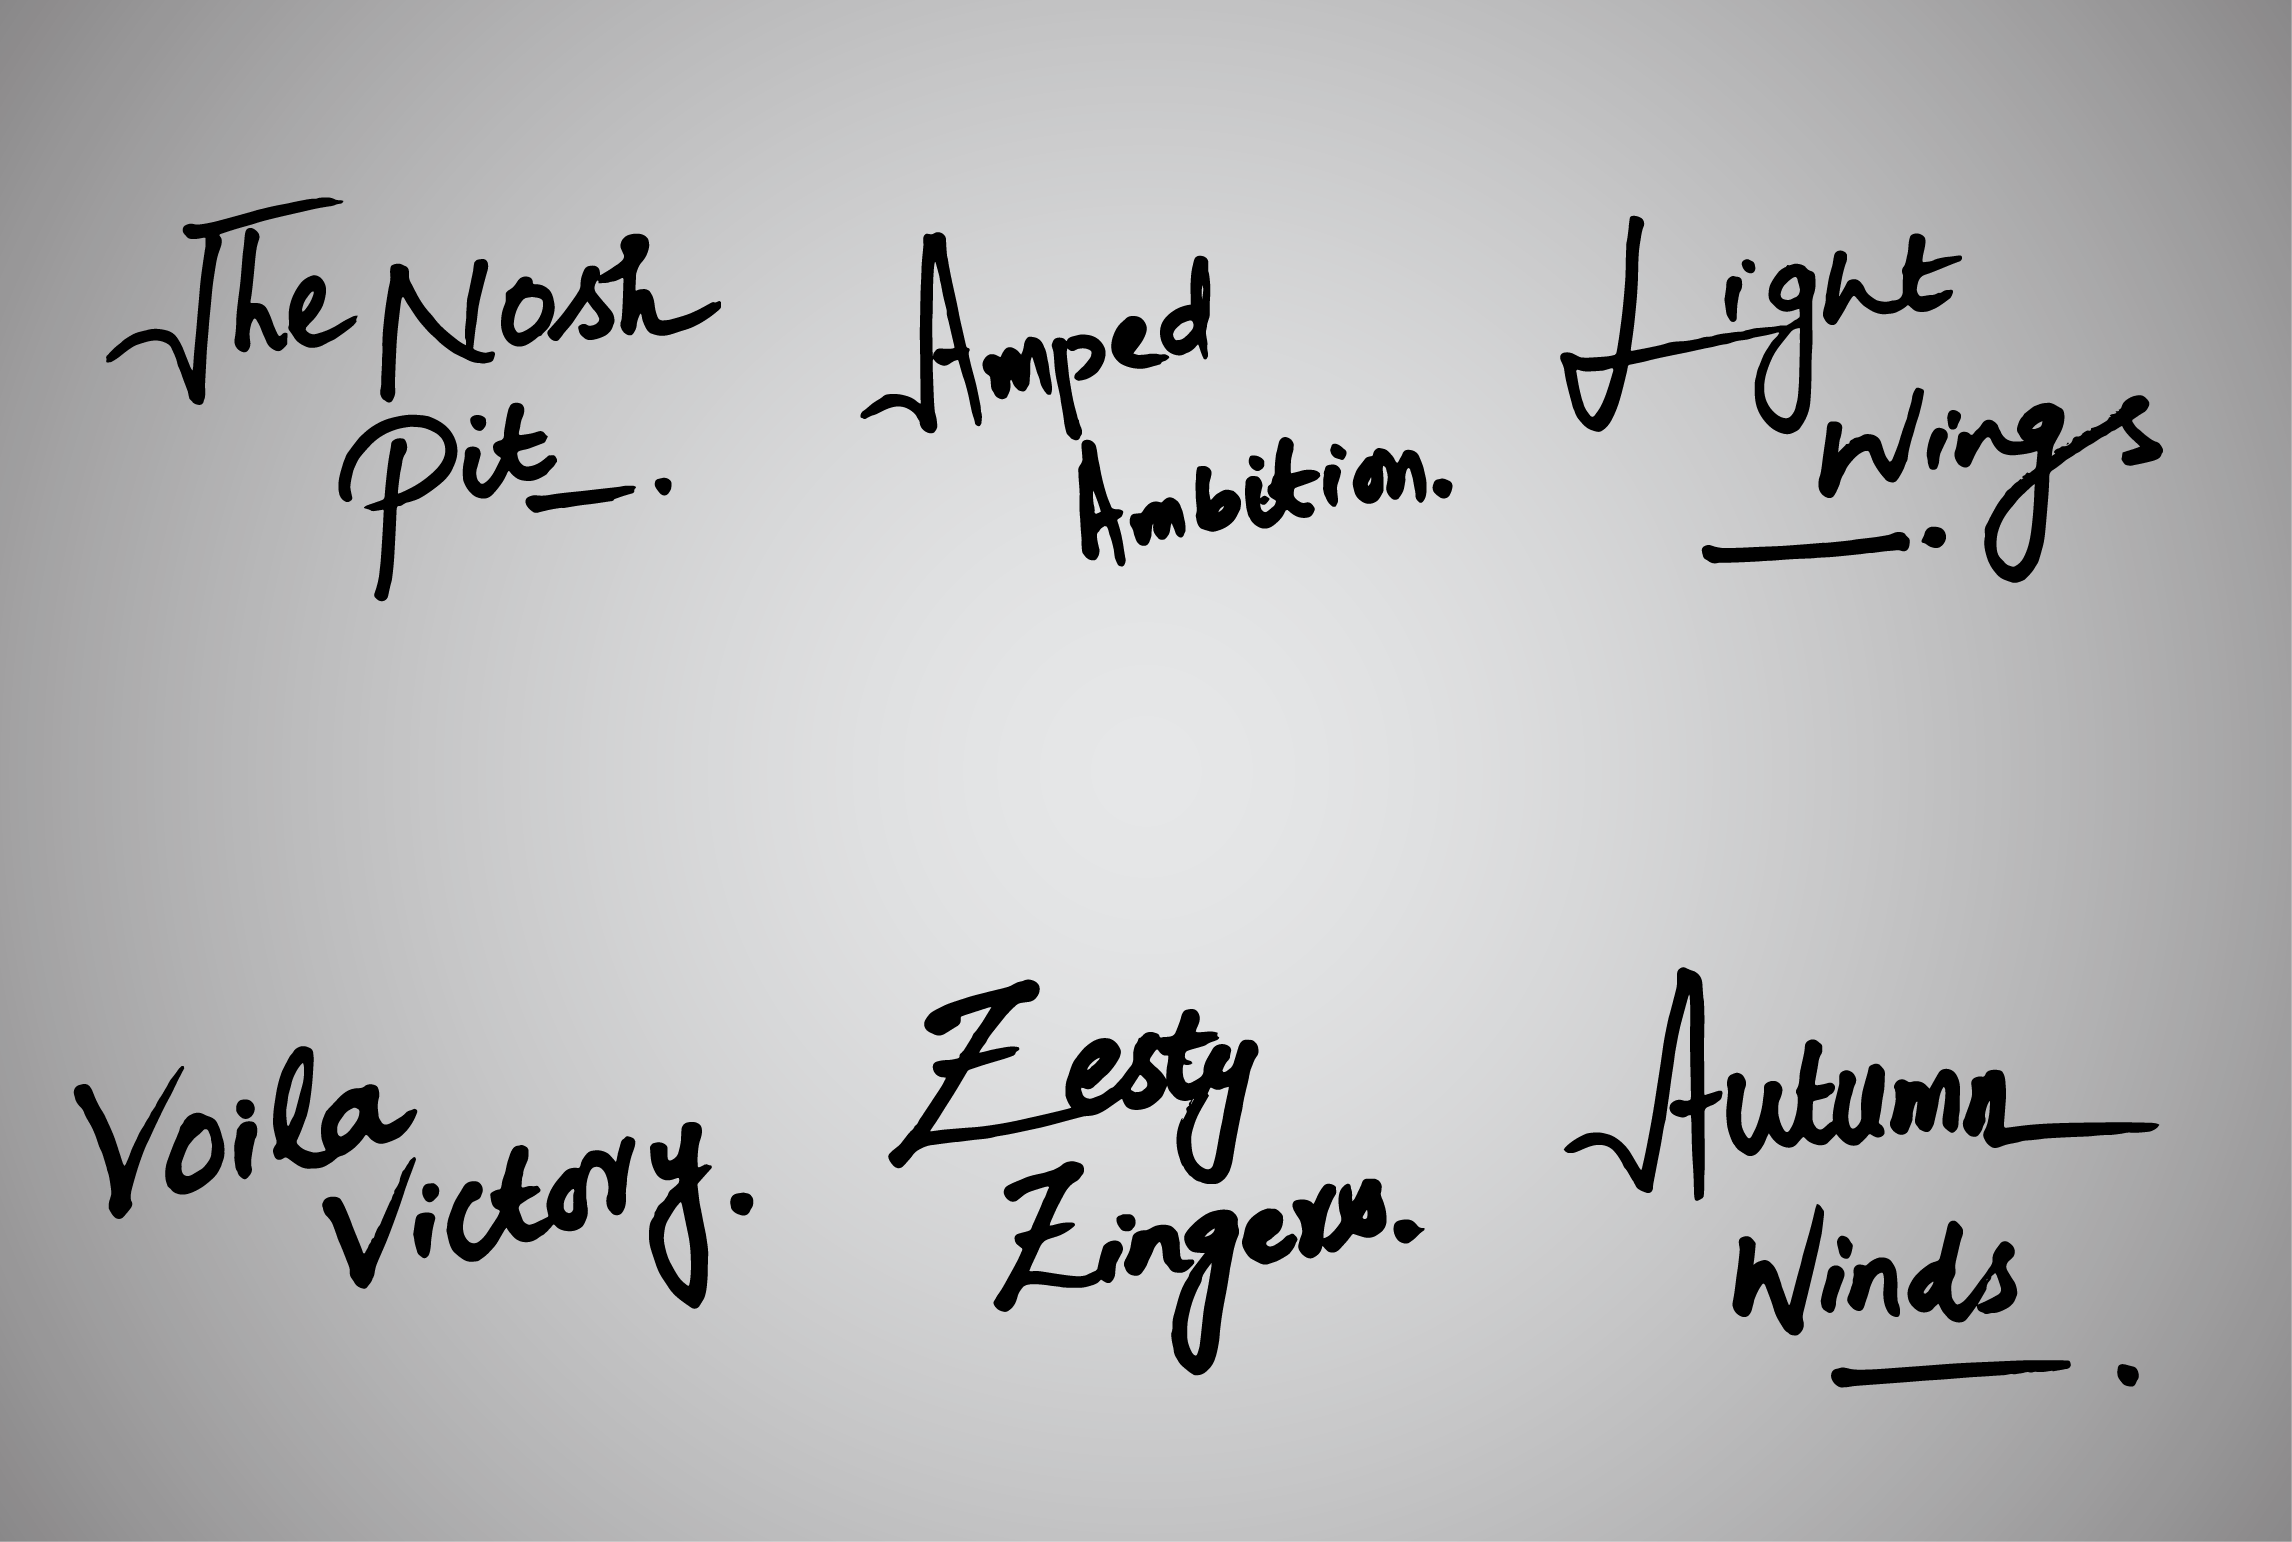 The Nosh
Pit.
Amped
Ambition.
Light
Wings.
Voila
Victory.
Zesty
Zingers.
Autumn
Winds.